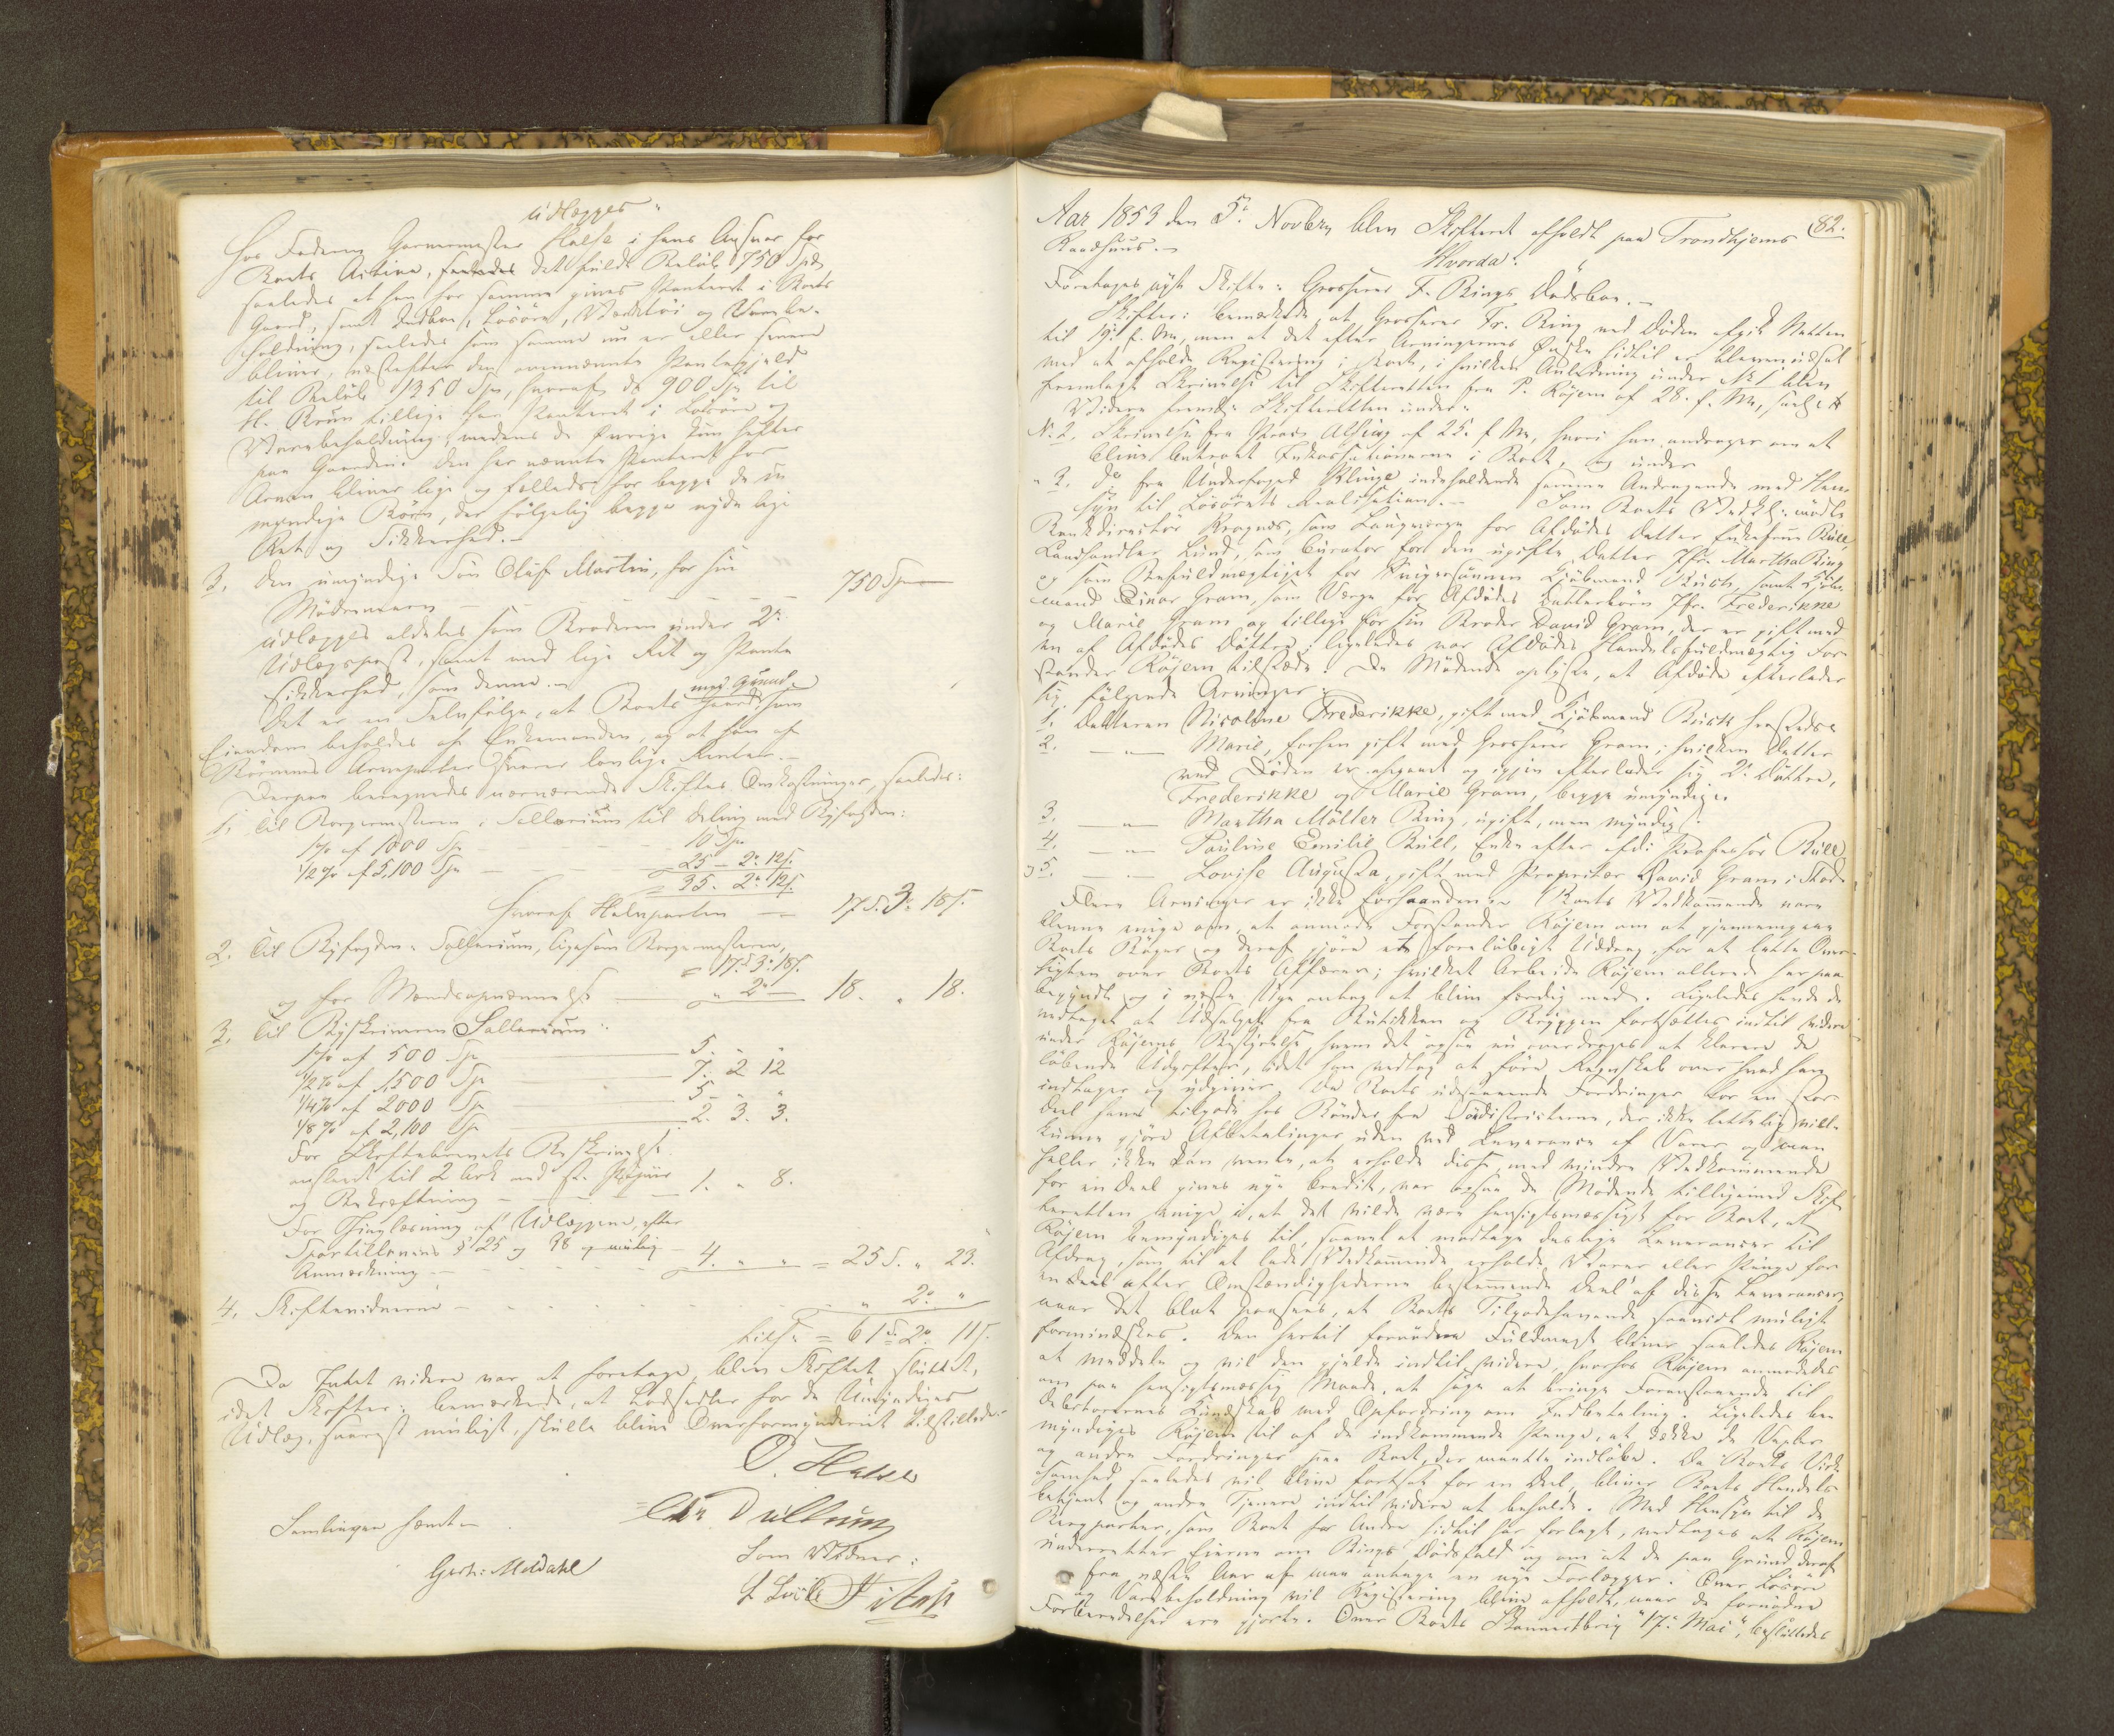 udlægges
hos Faderen Garvermester Halse i hans Ansvar for
Boets Activa, saaledes det fulde Beløb 750 Spd
saaledes at han for samme giver Panteret i Boets
Gaard, samt Indboe, Løsøre, Værktøi og Varebe-
holdning, saaledes som samme nu er eller senere
bliver, næstefter den ovennævnte Pantegjeld
til Beløb 1250 Spd, hvoraf de 900 Spd til
H. Bruun tillige har Panteret i Løsøre og
Varebeholdning, medens de øvrige kun hefter
paa Gaarden. Den her nævnte Panteret for
Arven bliver lige og fælleds for begge de u-
myndige Børn, der følgelig begge nyde lige
Ret og Sikkerhed.-
3. den umyndige Søn Oluf Martin, for sin
Mødrenearv - - - - - - 750 Spd
udlægges aldeles som Broderen under 2
Udlægspost, samt med lige Ret og Pante-
sikkerhed, som denne.-
med Grund
Det er en Selvfølge, at Boets Gaard som
Eiendom beholdes af Enkemanden, og at han af
Børnenes Arveparter svarer lovlige Renter.-
Derpaa beregnedes nærværende Skiftes Omkostninger, saaledes:
1. til Borgermesteren i Sallarium til Deling med Byfogden:
1% af 1000 Sp - - - 10 Sp
1/2 % af 5,100 Sp - - - 25 - 2. 12 s.
= 35. 2. 12 s.
hvoraf Halvparten - - 17 S. 3. 18 s.
2. til Byfogden i Sallarium, ligesom Borgermesteren,
= 17. 3. 18 s.
og for Mændsopnævnelse - " 2 - 18. " 18.
3. til Byskriveren Sallarium:
1% af 500 Sp - 5. " "
1/2 % af 1,500 Sp - 7. 2 12
1/4 % af 2000 Sp - 5 - " "
1/8 % af 2,100 Sp - 2. 3. 3.
For Skiftebrevets Beskrivelse
anslaaet til 2 Ark med st. Papiir
og Bekræftning - - - 1. " 8.
For Thinglæsning af Udlæggene, efter
Sportellovens § 25 og 98
Anmærkning - - - 4. " " = 25 S. " 23.
4. Skiftevidnerne - - - " 2. "
tils. = 61 S 2 11 s.
Da Intet videre var at foretage, blev Skiftet sluttet,
idet Skiftef: bemærkede, at Lodsedler for de Umyndiges
Udlæg, snarest muligt, skulle blive Overformynderiet tilstillede.-
O. Halse
Samlingen hævet.-
Gerh: Moldahl
Som Vidner:
82.
Aar 1853 den 5. Novbr blev Skifteret afholdt paa Trondhjems
Raadhuus.-
Hvorda:
Foretages nyt Skifte i Grosserer F. Rings Dødsboe.-
Skiftef: bemærkede, at Grosserer Fr. Ring ved Døden afgik Natten
til 19. f. M., men at det efter Arvingernes Ønske hidtil er bleven udsat
med at afholde Registrering i Boet, i hvilken Anledning under No 1 blev
fremlagt Skrivelse til Skifteretten fra P. Röjem af 28. f. M.,
Videre fremlægger Skifteretten under:
No 2. Skrivelse fra Alsing af 25. f M., hvori han andrager om at
blive betroet Inkassationerne i Boet, og under
" 3. do fra Underfoged Klinge indeholdende samme Andragende med Hen-
syn til Løsørets Realisation.- Som Boets Vedk: mødte
Bankdirecteur Krognes, som Laugværge for Afdødes Datter Enkefrue Bull,
Landhandler Lund, som Curator for den ugifte Datter Jfr. Martha Ring
og som Befuldmægtiget for Svigersønnen Kjøbmand Busch, samt Kjøb-
mand Einar Gram, som Værge for Afdødes Datterbørn Jfr. Frederikke
og Marie Gram og tillige for sin Broder David Gram, der er gift med
en af Afdødes Døttre; ligeledes var Afdødes Handelsfuldmægtig For-
stander Röjem tilstede. De Mødende oplyste, at Afdøde efterlader
sig følgende Arvinger:
1. Datteren Nicoline Frederikke, gift med Kjøbmand Busch her,
2. - " - Marie, forhen gift med Grosserer Gram; hvilken Datter
ved Døden er afgaaet og igjen efterlader sig 2 Døttre,
Frederikke og Marie Gram, begge umyndige.
3. - " - Martha Möller Ring, ugift, men myndig.
4. - " - Pauline Emilie Bull, Enke efter afdøde Professor Bull
og 5. - " - Lovise Augusta, gift med Proprietær David Gram i
Flere Arvinger er ikke forhaanden. Boets Vedkommende vare
denne enige om, at anmode Forstander Röjem om at gjennemgaae
Boets Bøger og deraf gjøre et foreløbigt Uddrag, for at lette Over-
sigten over Boets Affærer; hvilket Arbeide Röjem allerede har paa-
begyndt og i næste Uge antog at blive færdig med. Ligeledes havde de
vedtaget at Udsalget fra Butikken og Bryggen fortsættes indtil videre
under Röjems Bestyrelse hvem det ogsaa nu overdrages at klarere de
løbende Udgifter, idet han vedtog at føre Regnskab over hvad han
indtager og udgiver. Da Boets udestaaende Fordringer for en stor
Deel haves tilgode hos Bønder fra Fjorddistricterne, der ikke lettelig ville
kunne gjøre Afbetalinger uden ved Leverance af Varer og man
heller ikke kan vente, at erholde disse, med mindre Vedkommende
for en Deel gives nye Credit, var ogsaa de Mødende tilligemed Skif-
teretten enige i, at det vilde være hensigtsmæssigt for Boet, at
Röjem bemyndiges til, saavel at modtage deslige Leverancer til
Afdrag, som til at lade Vedkommende erholde Varer eller Penge for
en Deel efter Omstændighederne bestemmende Deel af disse Leverancer,
naar det blot paasees, at Boets Tilgodehavende saavidt muligt
formindskes. Den hertil fornødne Fuldmagt bliver saaledes Röjem
at meddele og vil den gjælde indtil videre, hvorhos Röjem anmodedes
om paa hensigtsmæssig Maade, at søge at bringe Foranstaaende til
Debitorernes Kundskab med Opfordring om Indbetaling. Ligeledes be-
myndiges Röjem til af de indkommende Penge, at dække de Vexler
og andre Fordringer paa Boet, der maatte indløbe. Da Boets Virk-
somhed saaledes vil blive fortsat for en Deel, bliver Boets Handels-
betjent og andre Tjenere indtil videre at beholde. Med Hensyn til de
Bergparter, som Boet for Andre hidtil har forlagt, vedtages at Röjem
underretter Eierne om Rings Dødsfald og om at de paa Grund deraf
fra næste Aar af maa antage en nye Forlægger. Over Løsøre
og Varebeholdning vil Registrering blive afholdt, naar de fornødne
Forberedelser ere gjorte. Over Boets Skonnertbrig "17. Mai", besluttedes